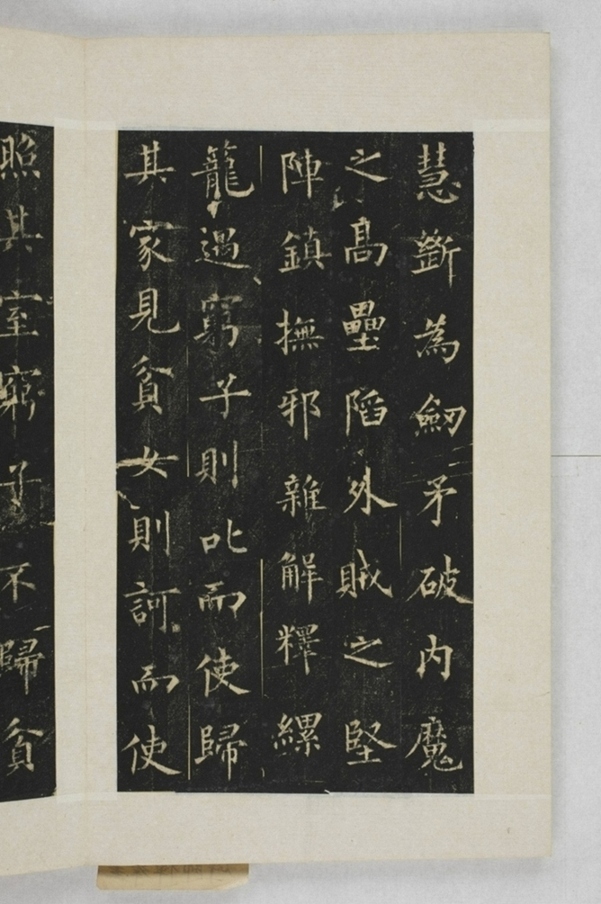 慧斷為劒矛破内魔
之髙壘陷外賊之堅
陣鎮撫邪雜解釋縲
籠遇窮子則叱而使歸
其家見貧女則訶而使
照其室窮子不歸貧